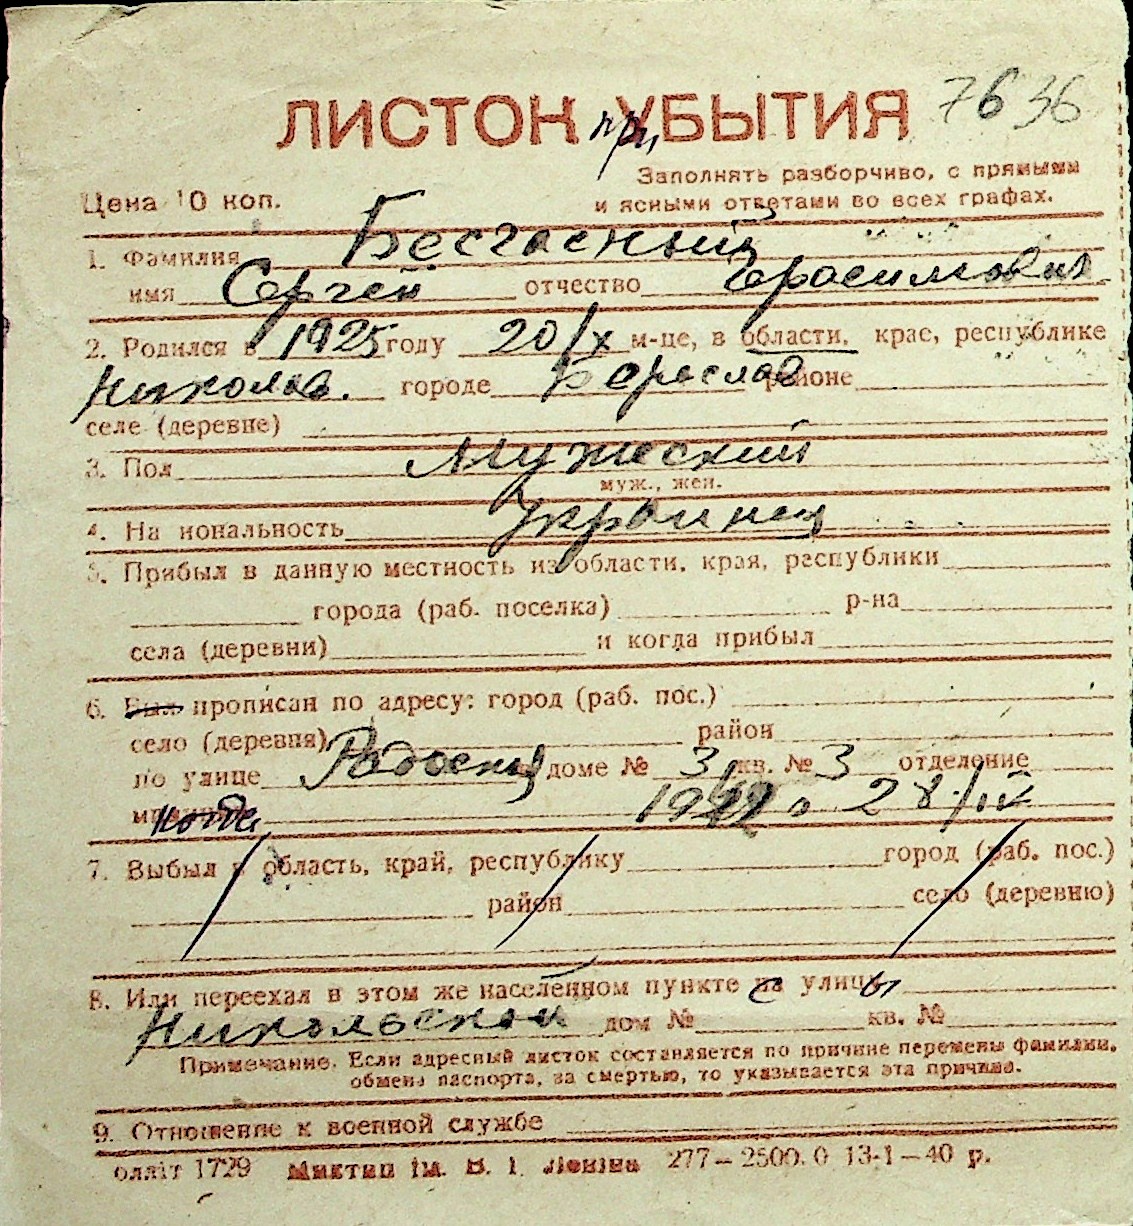 ЛИСТОК УБЫТИЯ 7636
при
Заполнять разборчиво, с прямыми
Цена 10 коп. и ясными ответами во всех графах.
1. Фамилия Бесчасный
имя Сергей отчество Герасимович
2. Родился в 1925 году 20/IX м-це, в области, крае, республике
Николаев. городе Берислав районе
селе (деревне)
3. Пол Мужеский
муж., жен.
4. На иональность Украинец
5. Прибыл в данную местность из области, края, республики
города (раб. поселка) р-на
села (деревни) и когда прибыл
6. Был прописан по адресу: город (раб. пос.)
село (деревня) район
по улице доме № 3 кв. № 3 отделение
когда 28/IV
7. Выбыл в область, край, республику город (раб. пос.)
район село (деревню)
8. Или переехал в этом же населенном пункте с улицы
Никольской дом № кв. №
Примечание. Если адресный листок составляется по причине перемены фамилии,
обмена паспорта, за смертью, то указывается эта причина.
9. Отношение к военной службе
олліт 1729 ім. В. І. Леніна 277–2500.0 13-1–40 р.